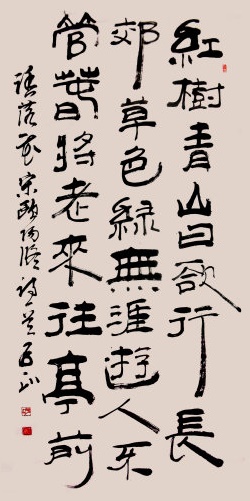 紅樹青山日欲行長
郊草色綠無涯遊人不
管春將老來往亭前
踏落花 宋歐陽修詩